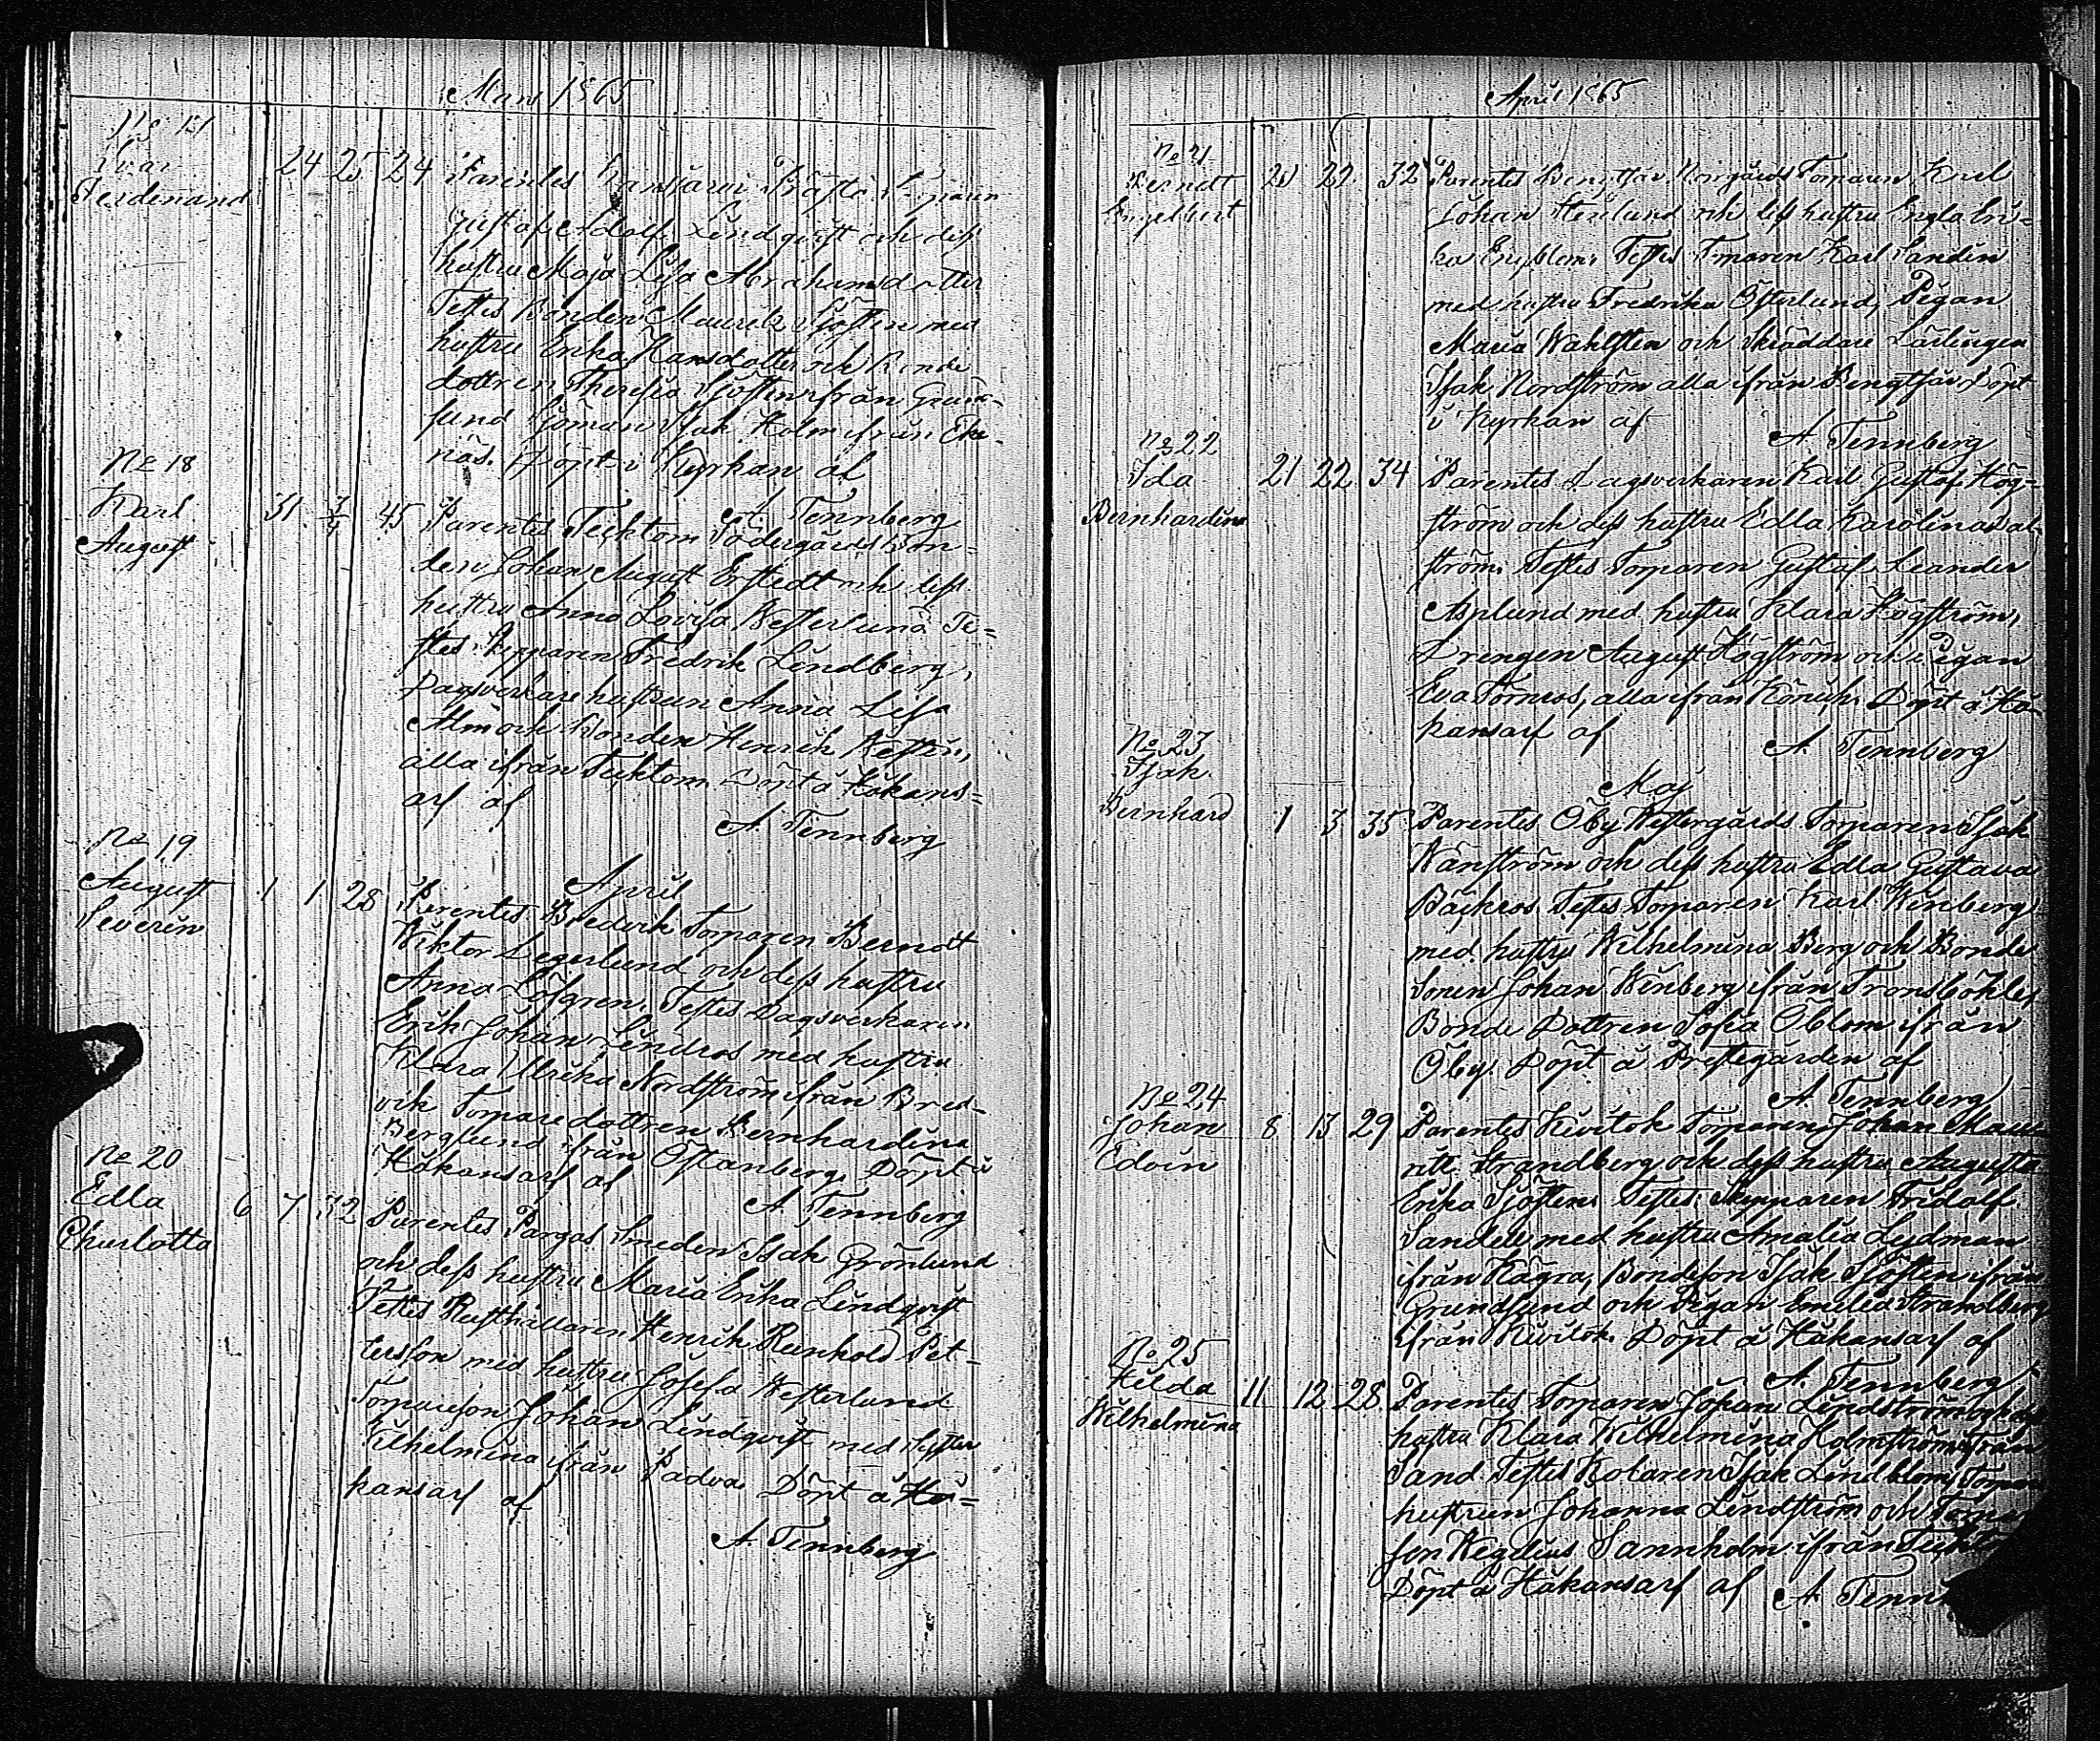 Mars 1865
No 17
Ivar
Ferdinand
24 25 24 Parentes Torparen
Gustaf Adolf Lindqvist och dess
hustru Maja Lisa Abrahamsdotter
Testes Bonden Maurits Sjösten med
hustru Erika Hansdotter och Bonde
dottren Theresia Sjösten ifrån Grund-
sund Isak Holm ifrån Eke-
näs. Döpt i Kyrkan af
A. Tennberg
No 18
Karl
August
31 3/4 45 Parentes Tecktom Södergårds Bon-
den Johan August Erstedt och dess
hustru Anna Lovisa Westerlund Te-
stes Skepparen Fredrik Lindberg,
Dagsverkare hustrun Anna Lisa
Alm och Bonden Henrik
alla ifrån Tecktom Döpt å Håkans-
arf af
A. Tennberg
April
No 19
August
Severin
1 1 28 Parentes Bredvik Torparen Berndt
Wiktor Legerlund och dess hustru
Anna Löfgren. Testes Dagsverkaren
Erik Johan Lindros med hustru
Klara Ulrika Nordström ifrån Bred-
vik Torparedottren Bernhardina
Berglund ifrån Östanberg. Döpt å
Håkansarf af
A. Tennberg
No 20
Edla
Charlotta
6 7 32 Parentes Pargas Smeden Isak Grönlund
och dess hustru Maria Erika Lindqvist
Testes Rusthållaren Henrik Reinhold Pet-
tersson med hustru Josefa Westerlund
Torpareson Johan Lindqvist med Syster
Wilhelmina ifrån Padva. Döpt å Hå-
kansarf af
A. Tennberg
April 1865
No 21
Berndt
Engelbert
20 22 32 Parentes Bengtsår Norrgårds Torparen Karl
Johan Stenlund och dess hustru Engla Eri-
ka Engblom. Testes Torparen Karl Sandin
med hustru Fredrika Österlund, Pigan
Maria Wahlsten och Skräddare Lärlingen
Isak Nordström alla ifrån Bengtsår Döpt
i Kyrkan af
A. Tennberg
No 22
Ida
Bernhardina
21 22 34 Parentes Dagsverkaren Karl Gustaf Hög-
ström och dess hustru Edla Karolina Wal-
ström. Testes Torparen Gustaf Leander
Asplund med hustru Klara Högström,
Drengen August Högström och Pigan
Eva Törnros, alla ifrån Döpt å Hå-
kansarf af
A. Tennberg
Maj
No 23
Isak
Bernhard
1 3 35 Parentes Öby Westergårds Torparen Isak
Wänström och dess hustru Edla Gustava
Bäckros. Testes Torparen Karl Winberg
med hustru Wilhelmina Berg och Bonde
Sonen Johan Winberg ifrån Transböhle,
Bonde Dottren Sofia Öblom ifrån
Öby. Döpt å Prestegården af
A. Tennberg
No 24
Johan
Edvin
8 13 29 Parentes Kivitok Torparen Johan Mau-
ritz Strandberg och dess hustru Augusta
Erika Sjösten. Testes: Skepparen Fridolf
Sandell med hustru Amalia Lydman
ifrån Hägra, Bondeson Isak Sjösten ifrån
Grundsund och Pigan Emilia Strandberg
ifrån Kivitok. Döpt å Håkansarf af
A. Tennberg
No 25
Hilda
Wilhelmina
11 12 28 Parentes Torparen Johan Lindström och dess
hustru Klara Wilhelmina Holmström ifrån
Sand Testes Kolaren Isak Lindblom, Torpare
hustrun Johanna Lindström och Torpare
son Wegelius Sannholm ifrån
Döpt å Håkansarf af A. Tenn